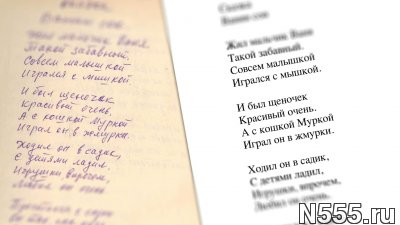 Жил мальчик Ваня
Такой забавный.
Совсем малышкой
Игрался с мышкой.
И был щеночек
Красивый очень.
А с кошкой Муркой
Играл он в жмурки.
Ходил он в садик,
С детями ладил,
Игрушки впрочем,
Любил он очень
Сказка
Жил мальчик Ваня
Такой забавный.
Совсем малышкой
Игрался с мышкой.
И был щеночек
Красивый очень.
А с кошкой Муркой
Играл он в жмурки.
Ходил он в садик,
С детями ладил,
Игрушки, впрочем,
Любил он очень.
N555.ru